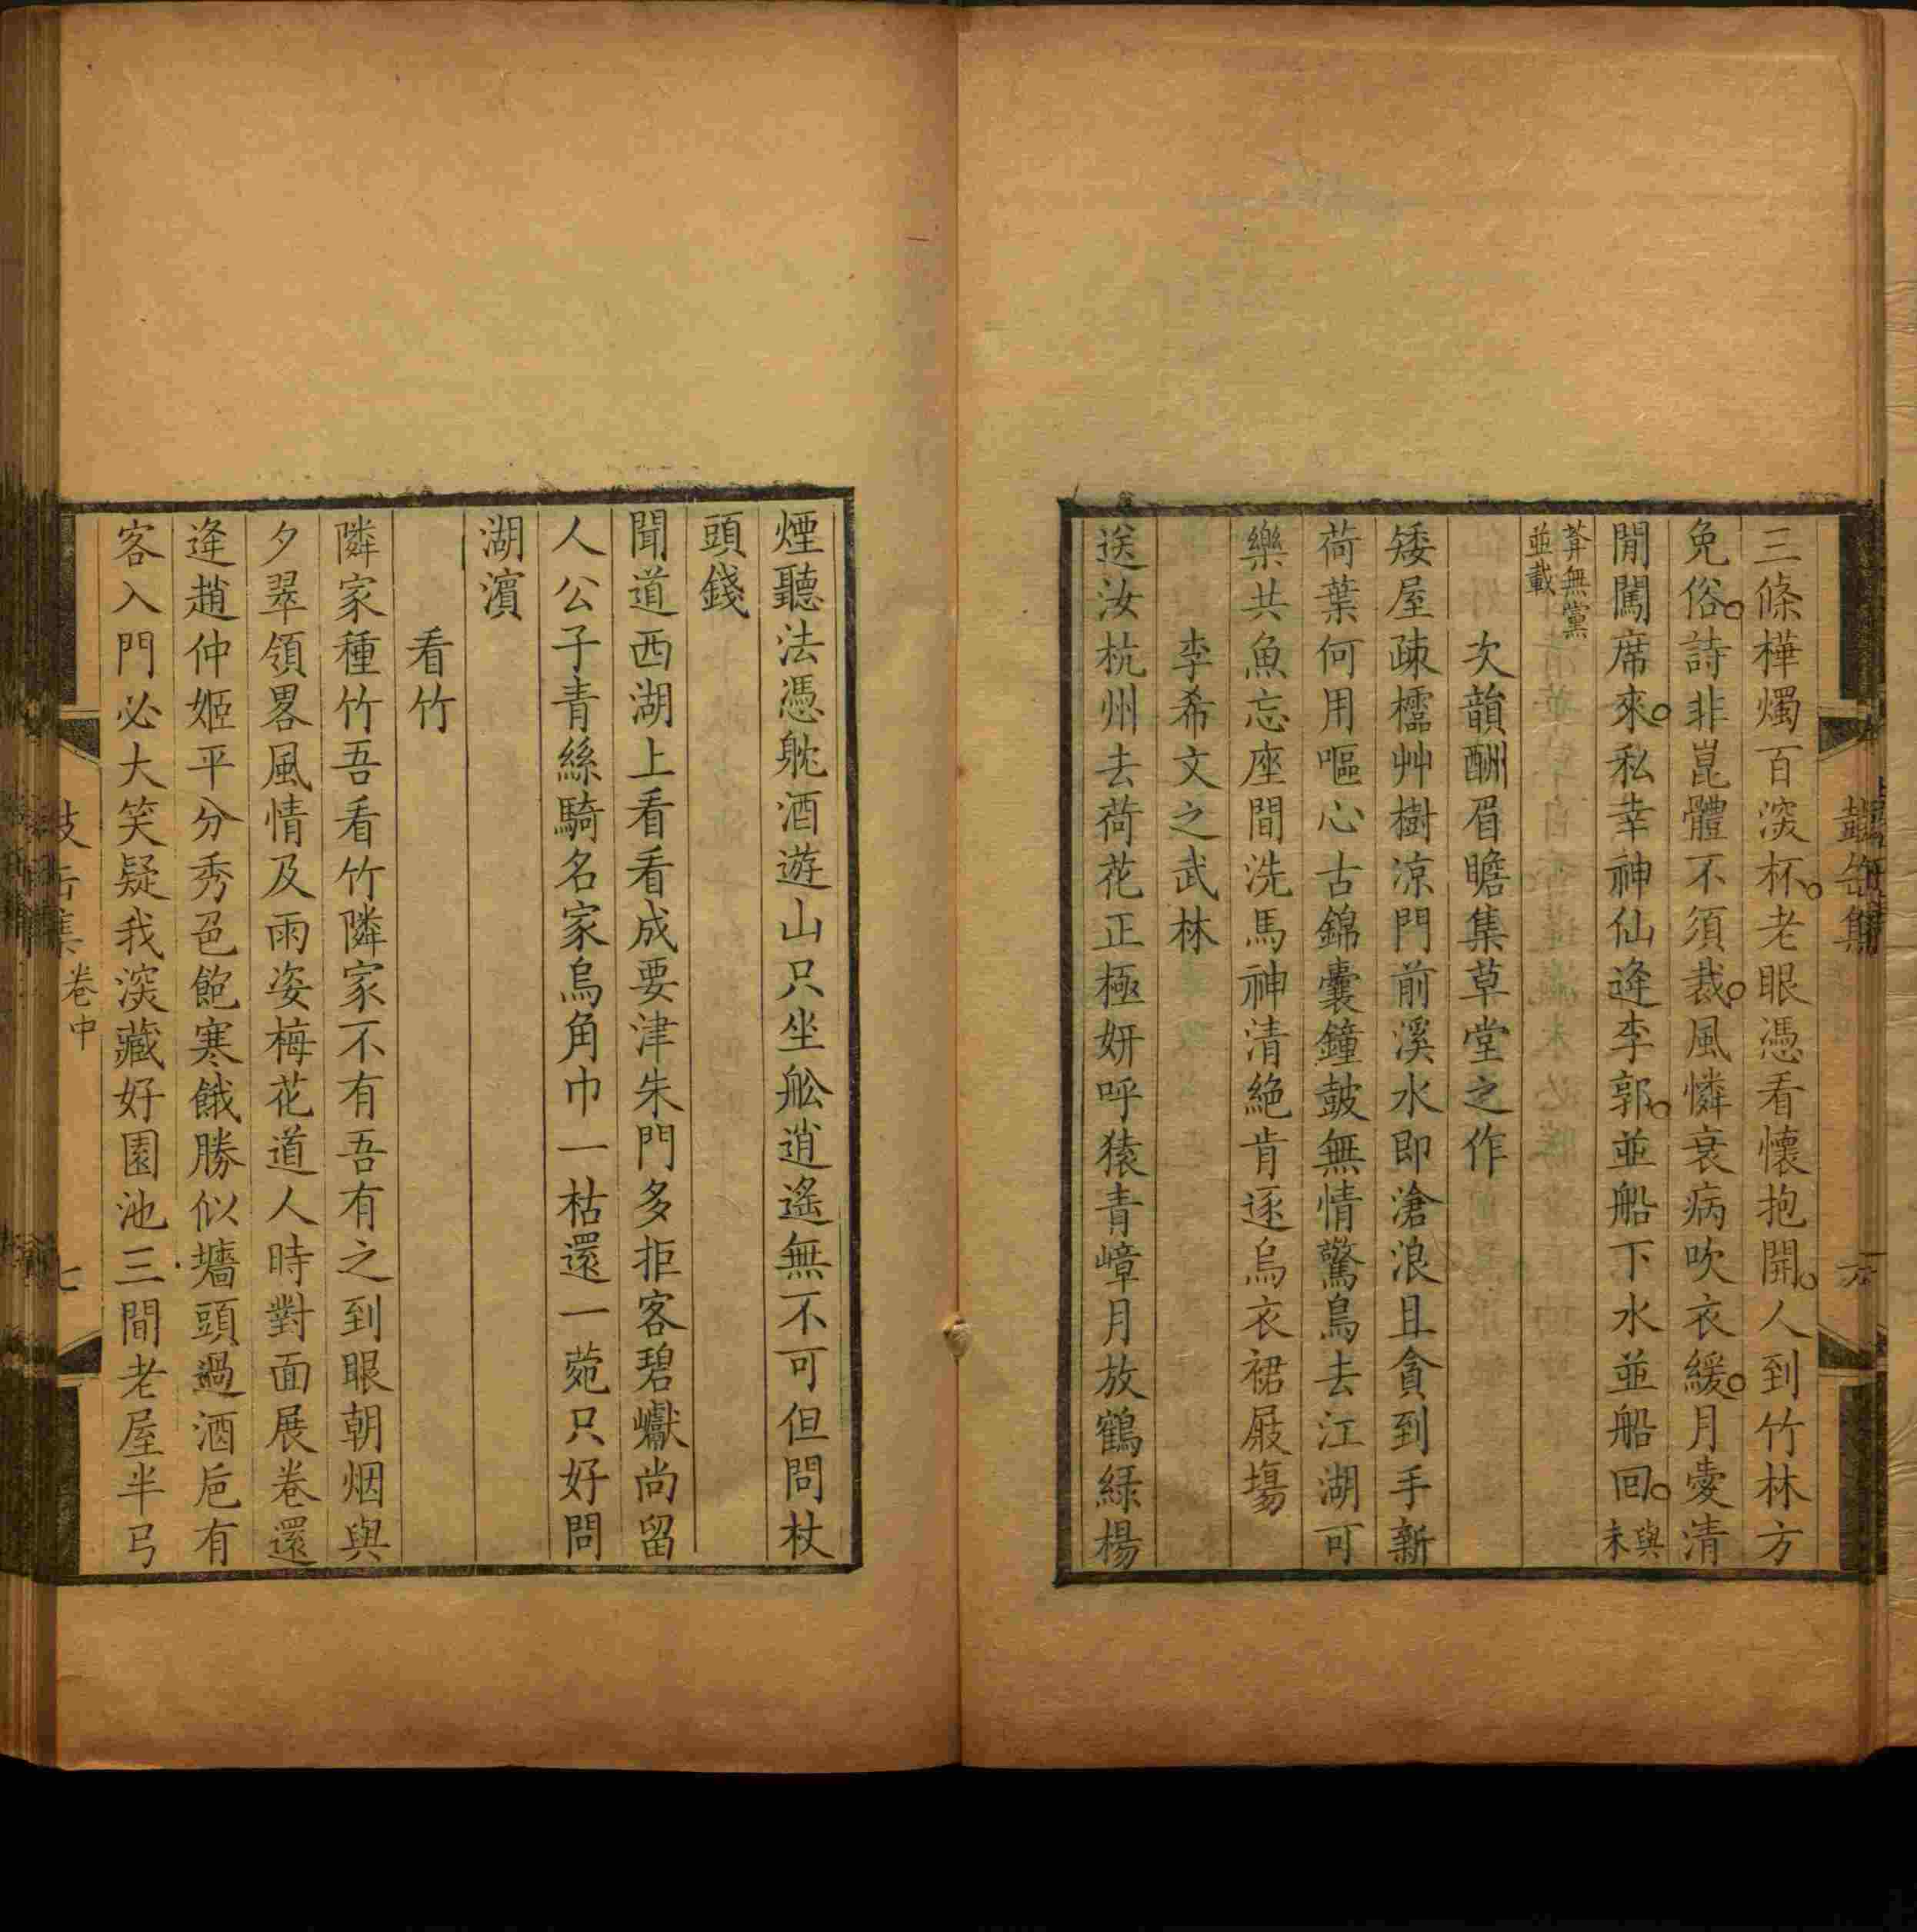 三條樺燭百深杯老眼憑看懷抱開人到竹林方
免俗詩非崑體不須裁風憐衰病吹衣緩月愛清
閒闖席來私幸神仙逢李郭並船下水並船回與未
葊無黨並載
次韻酬眉瞻集草堂之作
矮屋疎櫺艸樹凉門前溪水即滄浪且貪到手新
荷葉何用嘔心古錦囊鐘皷無情驚鳥去江湖可
樂共魚忘座間洗馬神清絕肯逐烏衣裙屐塲
李希文之武林
送汝杭州去荷花正極妍呼猿青嶂月放鶴緑楊
煙聽法憑躭酒遊山只坐舩逍遙無不可但問杖
頭錢
聞道西湖上看看成要津朱門多拒客碧巘尚留
人公子青絲騎名家烏角巾一枯還一菀只好問
湖濵
看竹
隣家種竹吾看竹隣家不有吾有之到眼朝烟與
夕翠領畧風情及雨姿梅花道人時對面展卷還
逢趙仲姬平分秀色飽寒餓勝似墻頭過酒巵有
客入門必大笑疑我深藏好園池三間老屋半弓
卷中
七